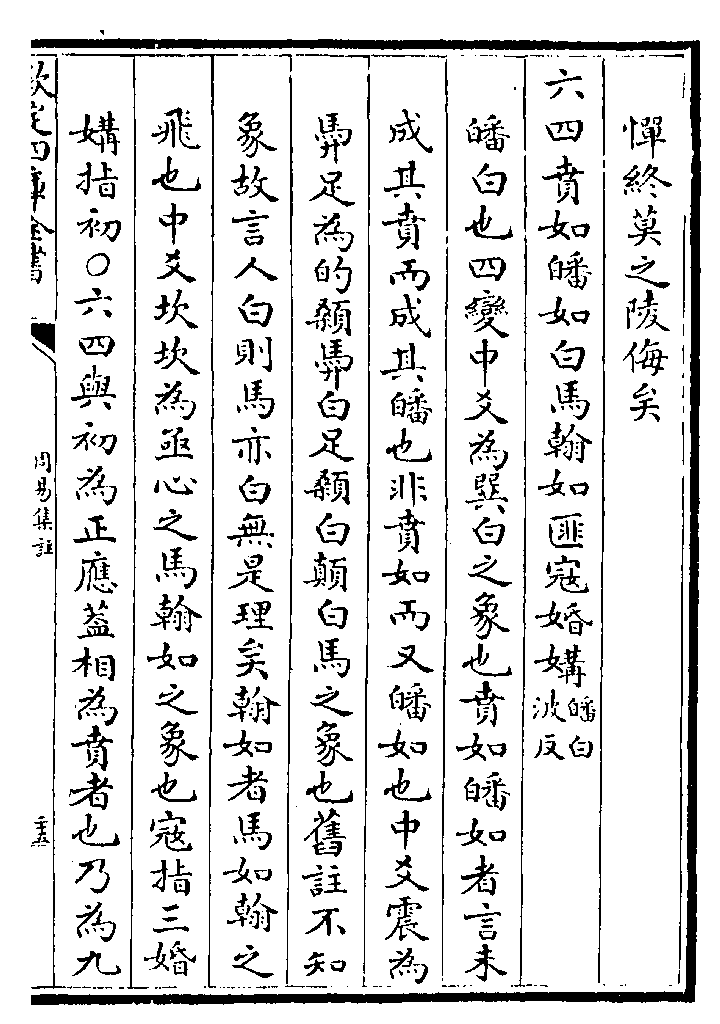 憚終莫之陵侮矣
六四賁如皤如白馬翰如匪寇婚媾皤白波反
皤白也四變中爻為巽白之象也賁如皤如者言未
成其賁而成其皤也非賁如而又皤如也中爻震為
馵足為的顙馵白足顙白顛白馬之象也舊註不知
象故言人白則馬亦白無是理矣翰如者馬如翰之
飛也中爻坎坎為亟心之馬翰如之象也寇指三婚
媾指初○六四與初為正應蓋相為賁者也乃為九
欽定四庫全書
周易集註